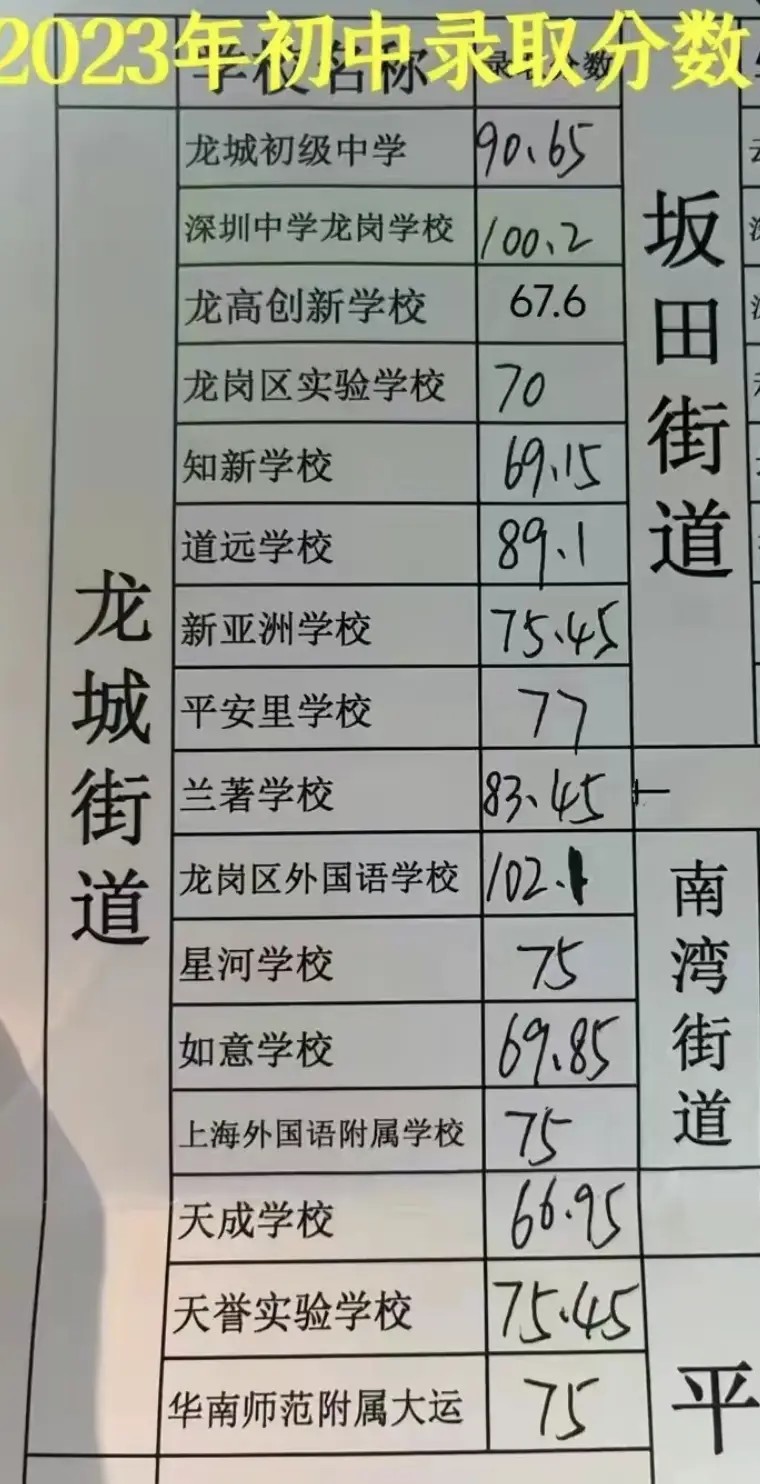 2023年初中录取分数
学校名称
龙城街道
龙城初级中学 90.65
深圳中学龙岗学校 100.2
龙高创新学校 67.6
龙岗区实验学校 70
知新学校 69.15
道远学校 89.1
新亚洲学校 75.45
平安里学校 77
兰著学校 83.45
龙岗区外国语学校 102.1
星河学校 75
如意学校 69.85
上海外国语附属学校 75
天成学校 66.95
天誉实验学校 75.45
华南师范附属大运 75
坂田街道
南湾街道
平